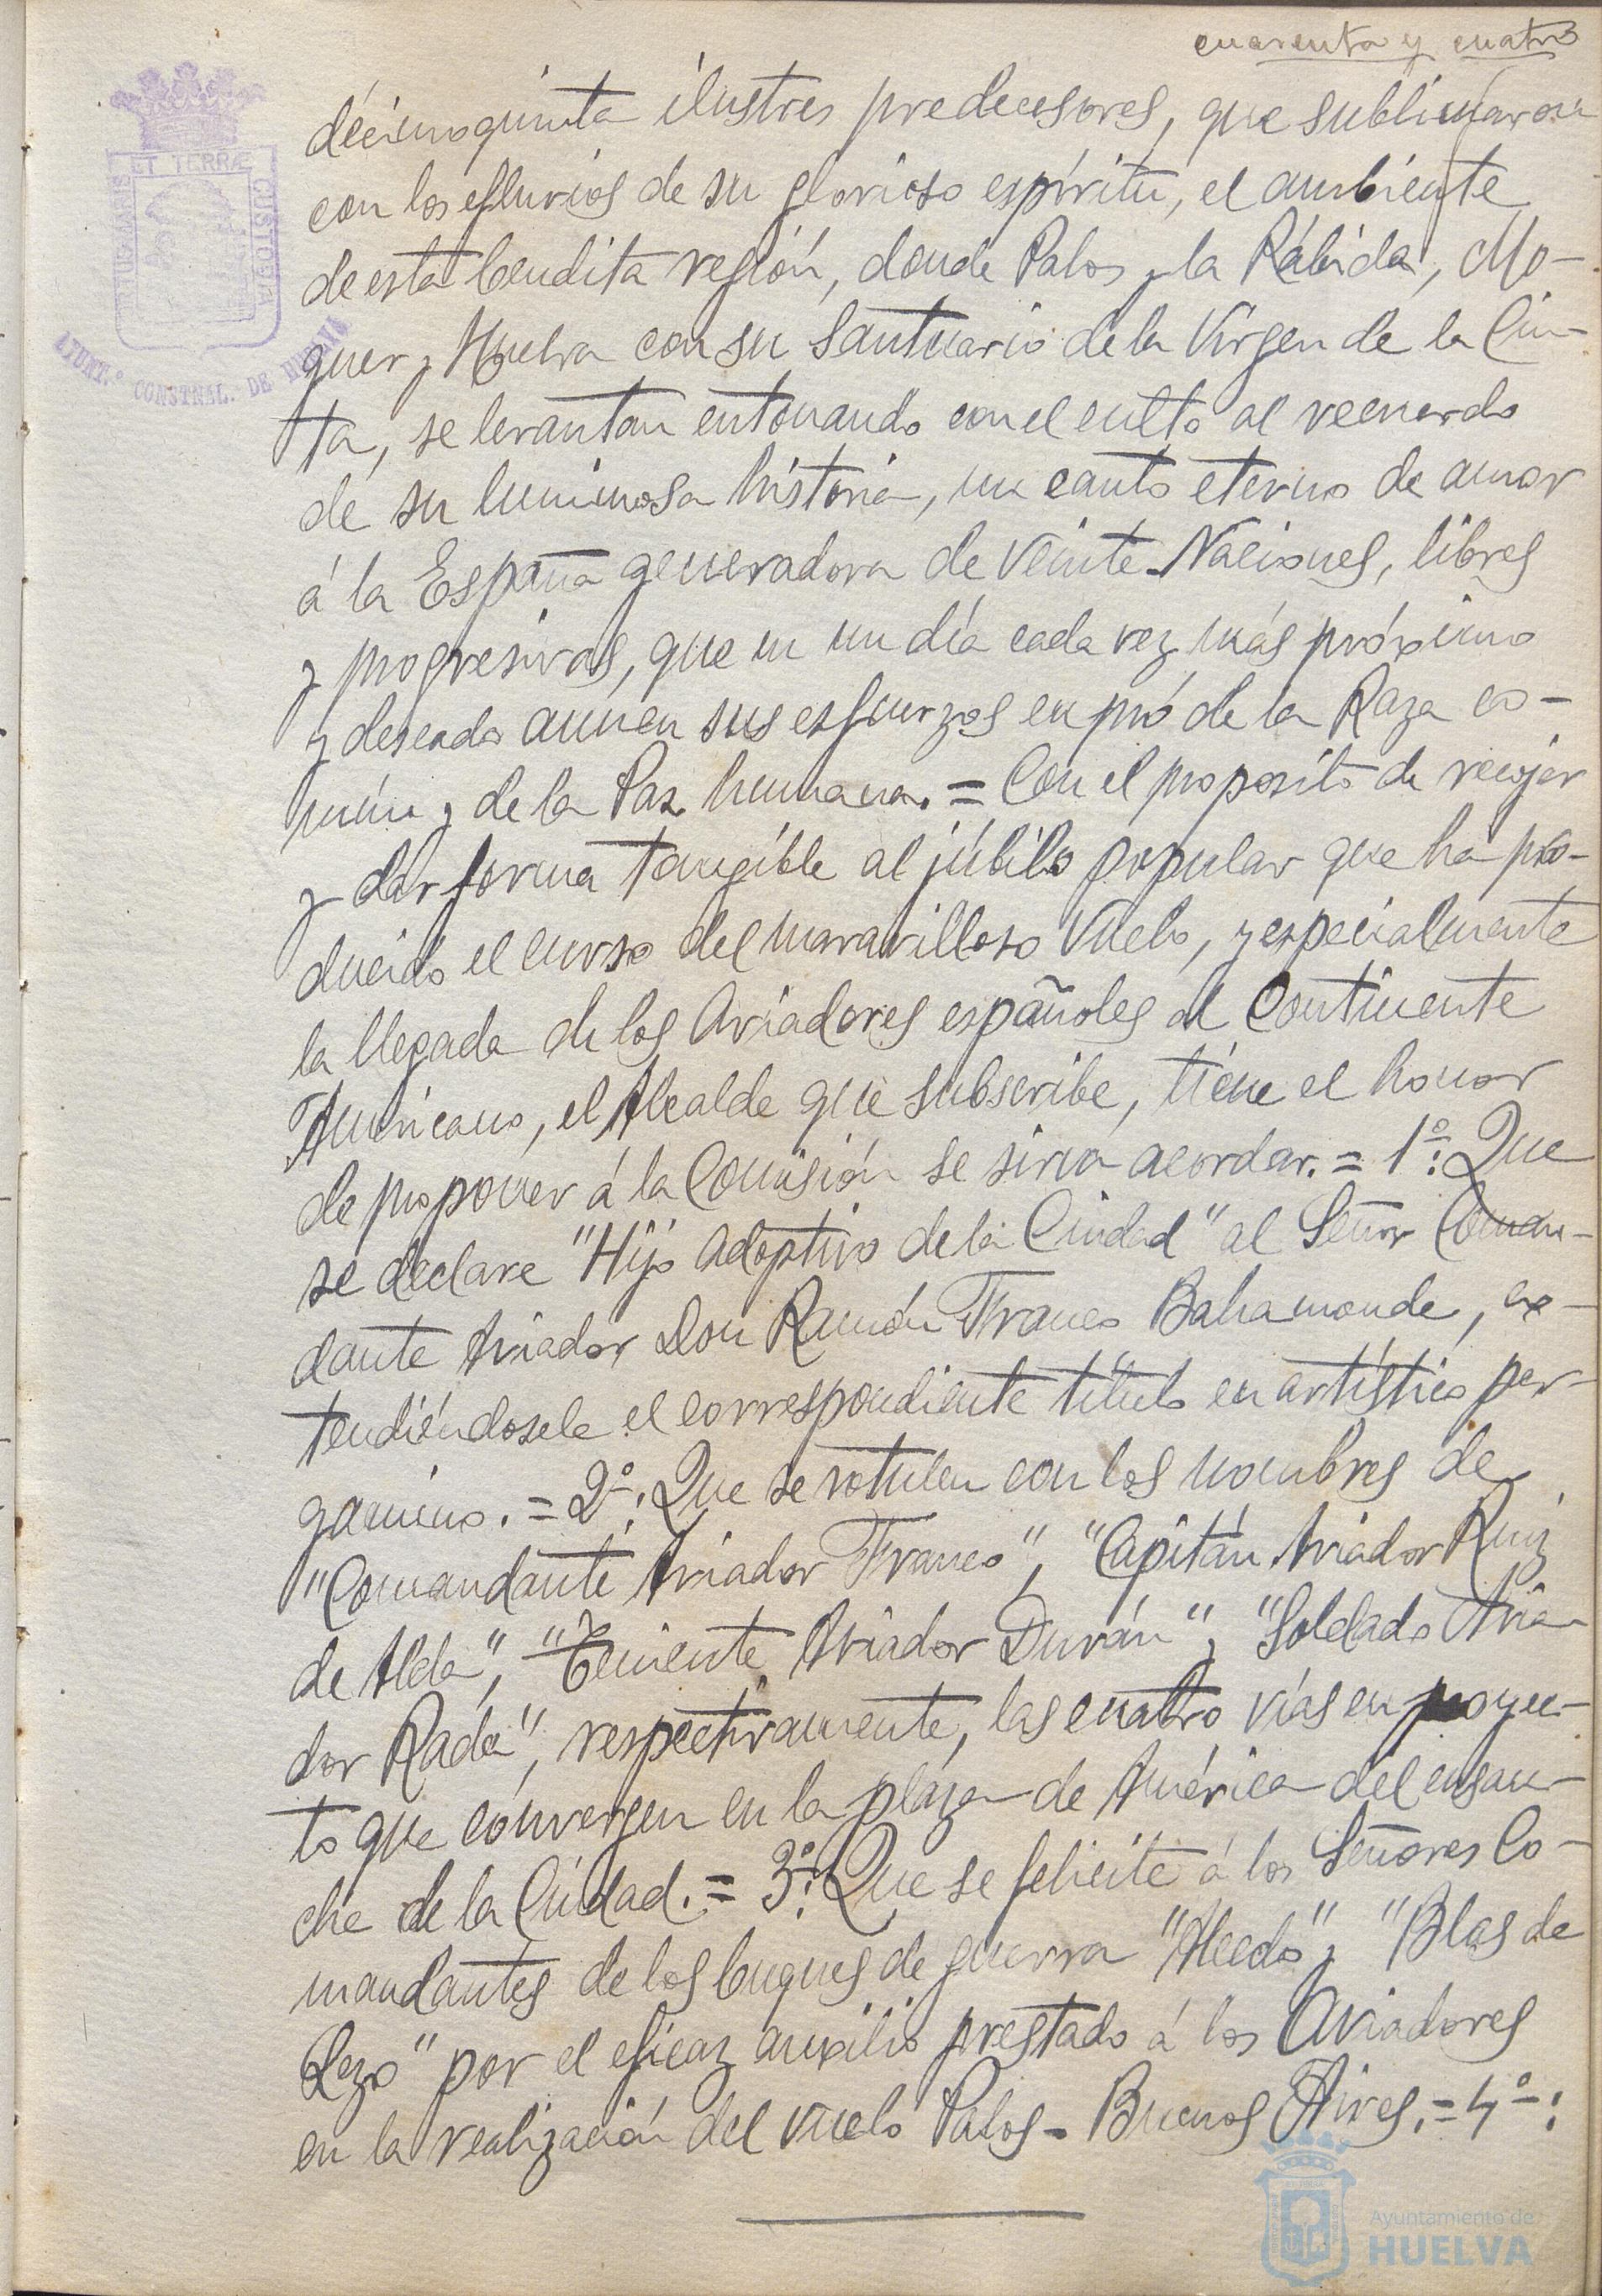 cuarenta y cuatro
décimoquinta ilustres predecesores, que sublimaron
con los efluvios de su glorioso espíritu, el ambiente
de esta bendita región, donde Palos y la Rábida, Mo-
guer y Huelva con su Santuario de la Virgen de la Cin-
ta, se levantan entonando con el culto al recuerdo
de su luminosa historia, un canto eterno de amor
á la España generadora de Veinte Naciones, libres
y progresivas, que en un día cada vez más próximo
y deseado aunen sus esfuerzos en pró de la Raza co-
mún y de la Paz humana. = Con el proposito de recojer
y dar forma tangible al júbilo popular que há pro-
ducido el curso del maravilloso Vuelo, y especialmente
la llegada de los Aviadores españoles al Continente
Americano, el Alcalde que subscribe, tiene el honor
de proponer á la Comisión se sirva acordar. = 1º: Que
se declare "Hijo Adoptivo de la Ciudad" al Señor Coman-
dante Aviador Don Ramón Franco Bahamonde, ex-
tendiéndosele el correspondiente título en artístico per-
gamino. = 2º: Que se rotulen con los nombres de
"Comandante Aviador Franco", "Capitán Aviador Ruiz
de Alda", "Teniente Aviador Durán" y "Soldado Avia-
dor Rada", respectivamente, las cuatro vías en proyec-
to que convergen en la plaza de América del ensan-
che de la Ciudad. = 3º: Que se felicite á los Señores Co-
mandantes de los buques de guerra "Alsedo" y "Blas de
Lezo" por el eficaz auxilio prestado á los Aviadores
en la realización del vuelo Palos - Buenos Aires. = 4º:
PORTUS MARIS ET TERRÆ CUSTODIA
AYUNT.º CONSTNAL. DE HUELVA
Ayuntamiento de
HUELVA